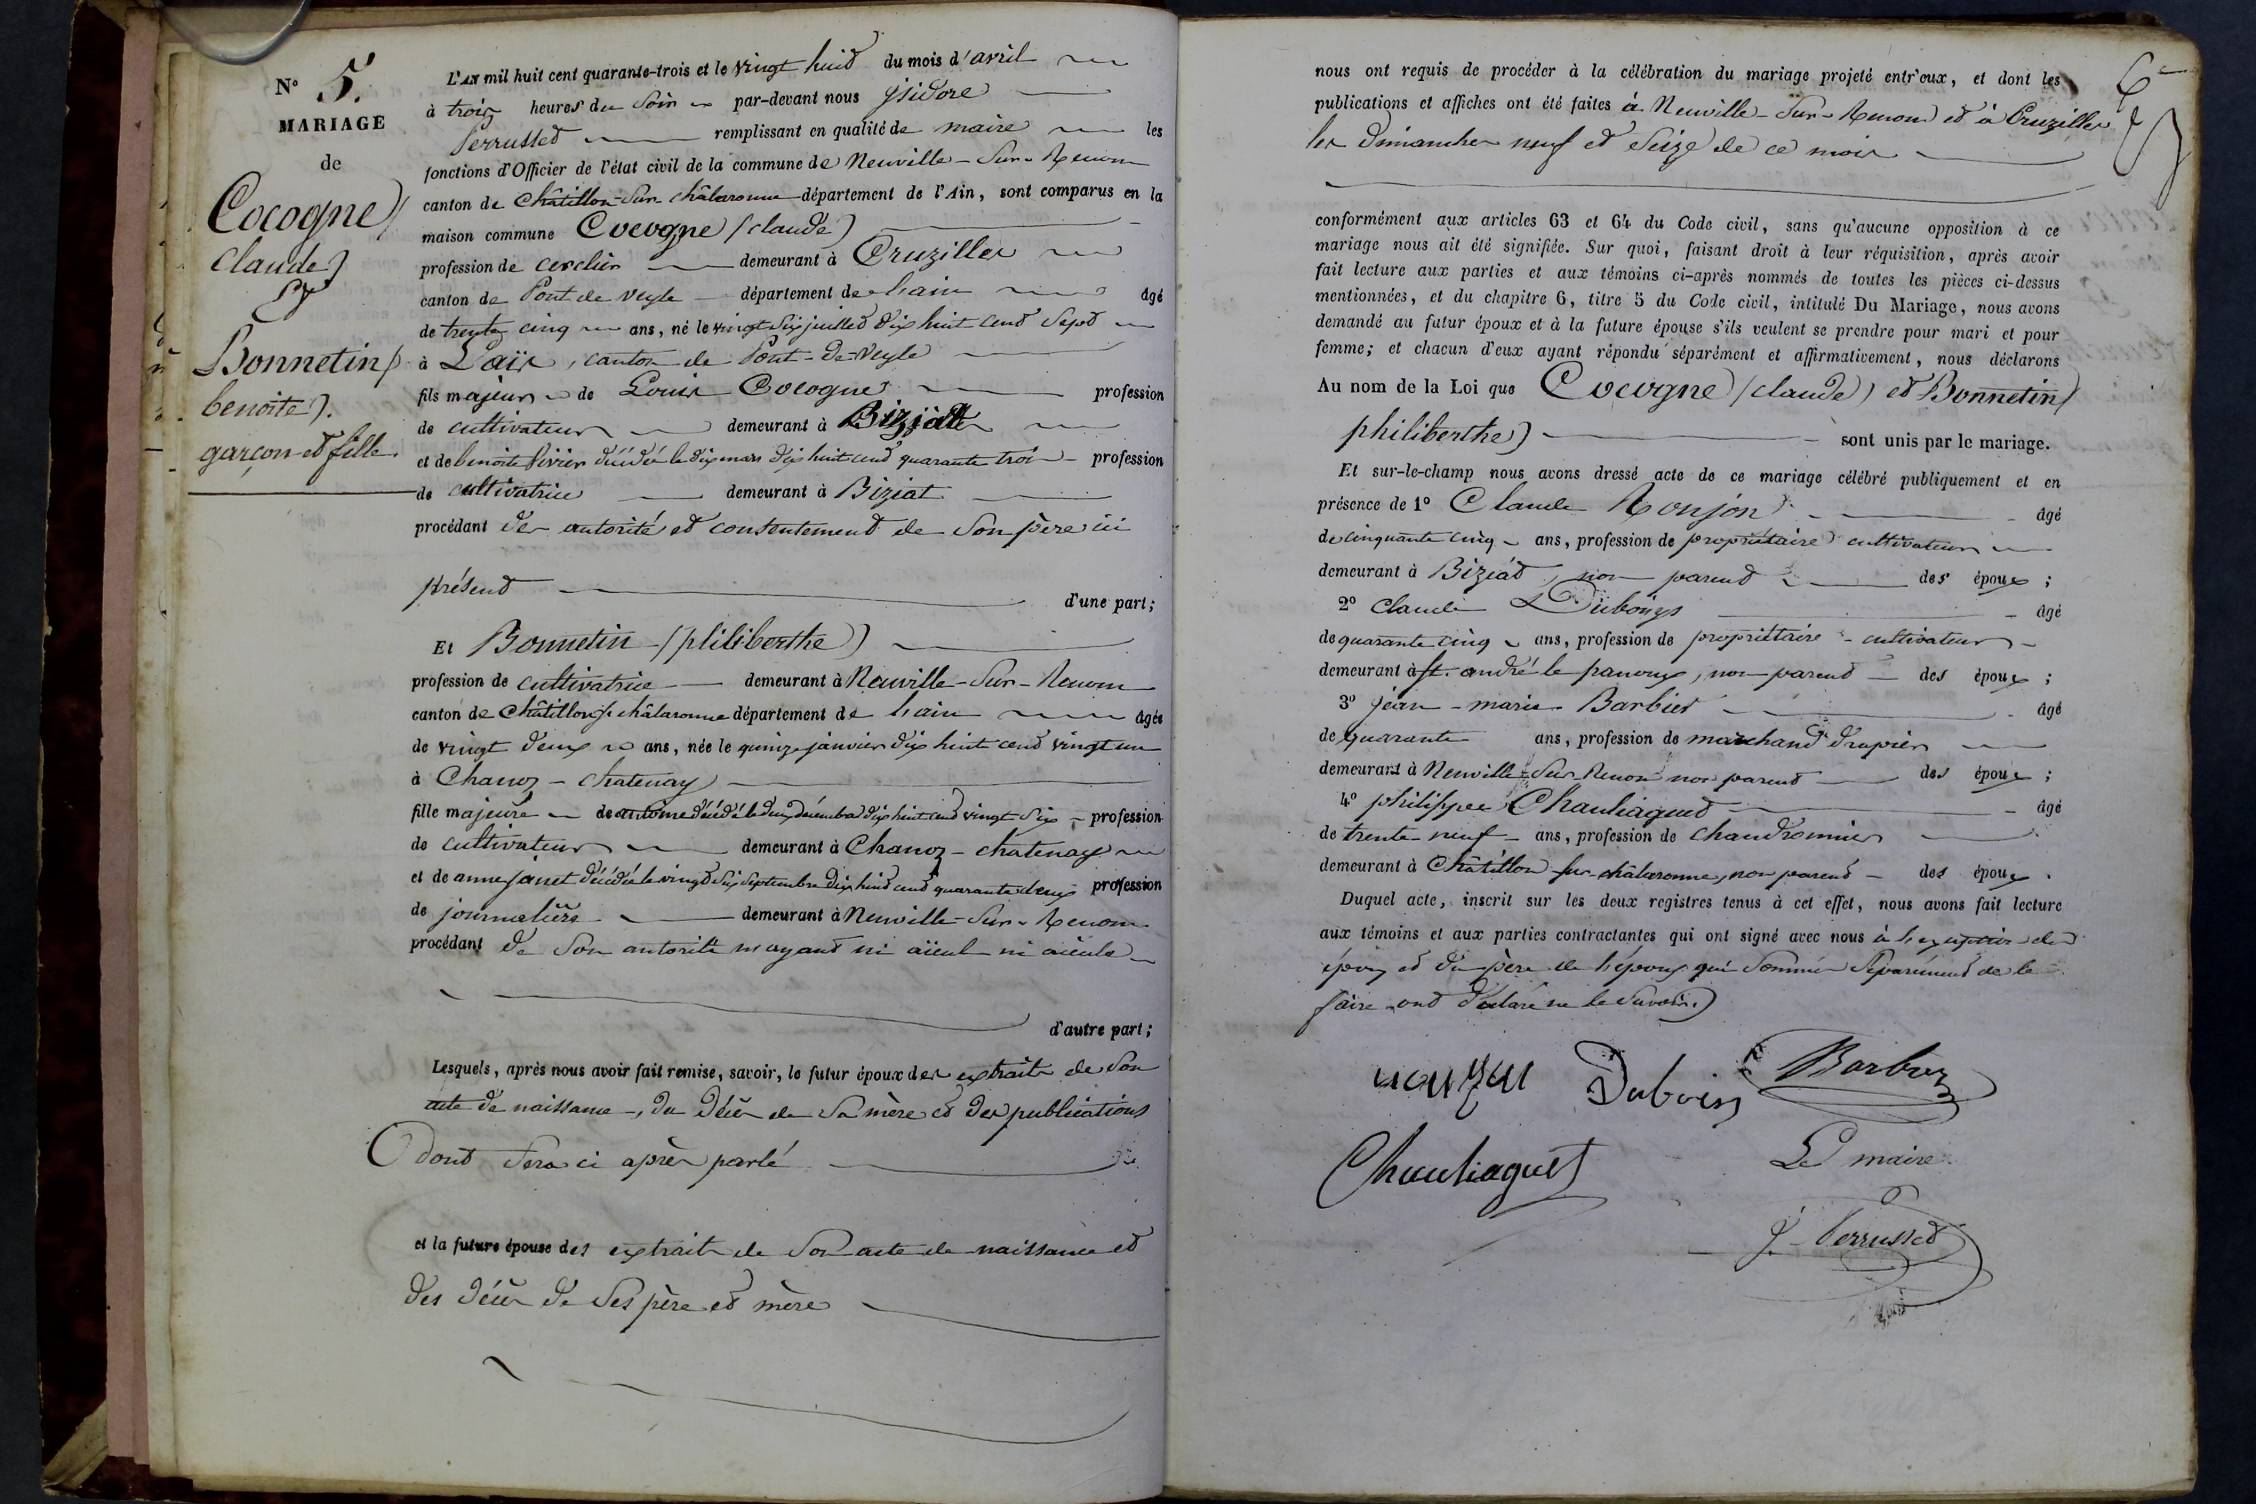 N° 5.
MARIAGE
de
Cocogne
(claude)
&
Bonnetin
benoite).
garçon et fille.
L'AN mil huit cent quarante-trois et le vingt huit du mois d'avril
à trois heures du soir par-devant nous ysidore
Perrusset remplissant en qualité de maire les
fonctions d'Officier de l'état civil de la commune de Neuville-Sur-Renom
canton de Châtillon-Sur châlaronne département de l'Ain, sont comparus en la
maison commune Cocogne (claude)
profession de cerclier demeurant à Cruzilles
canton de Pont de Veyle département de l'ain âgé
de trente cinq ans, né le vingt six juillet dix huit cent sept
à Laiz, canton de Pont-de-Veyle
fils majeur de Louis Cocogne profession
de cultivateur demeurant à Biziat
et de benoite Pirier décédée le dix mars dix huit cent quarante trois profession
de cultivatrice demeurant à Biziat
procédant des autorité et consentement de son père ici
présent d'une part;
Et Bonnetin (philiberthe)
profession de cultivatrice demeurant à Neuville-Sur-Renom
canton de Châtillon s. châlaronne département de l'ain âgée
de vingt deux ans, née le quinze janvier dix huit cent vingt un
à Chanoz-chatenay
fille majeure de antoine décédé le deux décembre dix huit cent vingt six profession
de cultivateur demeurant à Chanoz-chatenay
et de anne janet décédée le vingt six septembre dix huit cent quarante deux profession
de journalière demeurant à Neuville-Sur-Renom
procédant de son autorité n'ayant ni aïeul ni aïeule
d'autre part;
Lesquels, après nous avoir fait remise, savoir, le futur époux des extraits de son
acte de naissance, du décès de sa mère et des publications
dont sera ci après parlé
et la future épouse des extraits de son acte de naissance et
des décès de ses père et mère
6e
nous ont requis de procéder à la célébration du mariage projeté entr'eux, et dont les
publications et affiches ont été faites à Neuville-Sur-Renom et à Cruzilles
les dimanches neuf et seize de ce mois
conformément aux articles 63 et 64 du Code civil, sans qu'aucune opposition à ce
mariage nous ait été signifiée. Sur quoi, faisant droit à leur réquisition, après avoir
fait lecture aux parties et aux témoins ci-après nommés de toutes les pièces ci-dessus
mentionnées, et du chapitre 6, titre 5 du Code civil, intitulé Du Mariage, nous avons
demandé au futur époux et à la future épouse s'ils veulent se prendre pour mari et pour
femme; et chacun d'eux ayant répondu séparément et affirmativement, nous déclarons
Au nom de la Loi que Cocogne (claude) et Bonnetin
philiberthe) sont unis par le mariage.
Et sur-le-champ nous avons dressé acte de ce mariage célébré publiquement et en
présence de 1° Claude Ronjon âgé
de cinquante cinq ans, profession de propriétaire cultivateur
demeurant à Biziat, non parent des époux;
2° Claude Duboiys âgé
de quarante cinq ans, profession de propriétaire-cultivateur
demeurant à st. andré le panoux, non parent des époux;
3° jean-marie Barbier âgé
de quarante ans, profession de marchand drapier
demeurant à Neuville-Sur-Renom non parent des époux;
4° philippe Chauliaguet âgé
de trente-neuf ans, profession de chaudronnier
demeurant à Châtillon-sur-châlaronne, non parent des époux.
Duquel acte, inscrit sur les deux registres tenus à cet effet, nous avons fait lecture
aux témoins et aux parties contractantes qui ont signé avec nous à l'exception des
époux et du père de l'époux qui sommés séparément de le
faire ont déclaré ne le savoir.)
Dubois Barbier
Chauliaguet Le maire
J. Perrusset